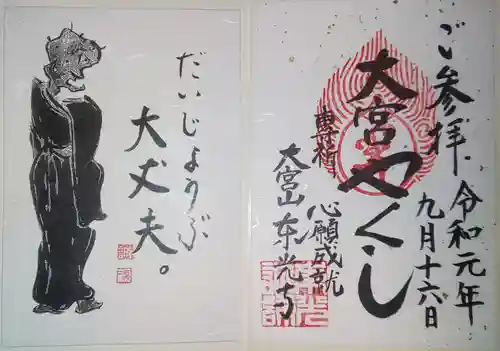 だいじょうぶ
大丈夫。
ご参拝
令和元年
九月十六日
大宮やくし
専祈
心願成就
大宮山東光寺